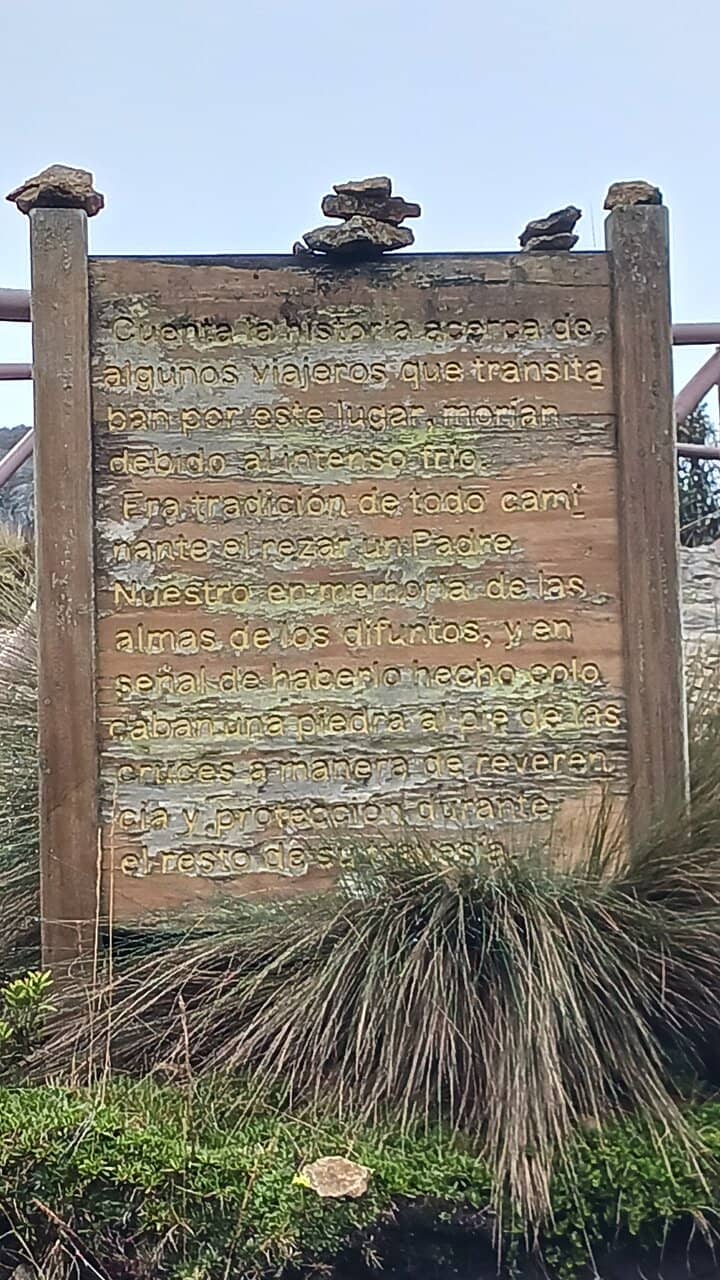 Cuenta la historia acerca de
algunos viajeros que transita
ban por este lugar, morían
debido al intenso frío.
Era tradición de todo cami
nante el rezar un Padre
Nuestro en memoria de las
almas de los difuntos, y en
señal de haberlo hecho colo
caban una piedra al pie de las
cruces a manera de reveren
cia y protección durante
el resto de su